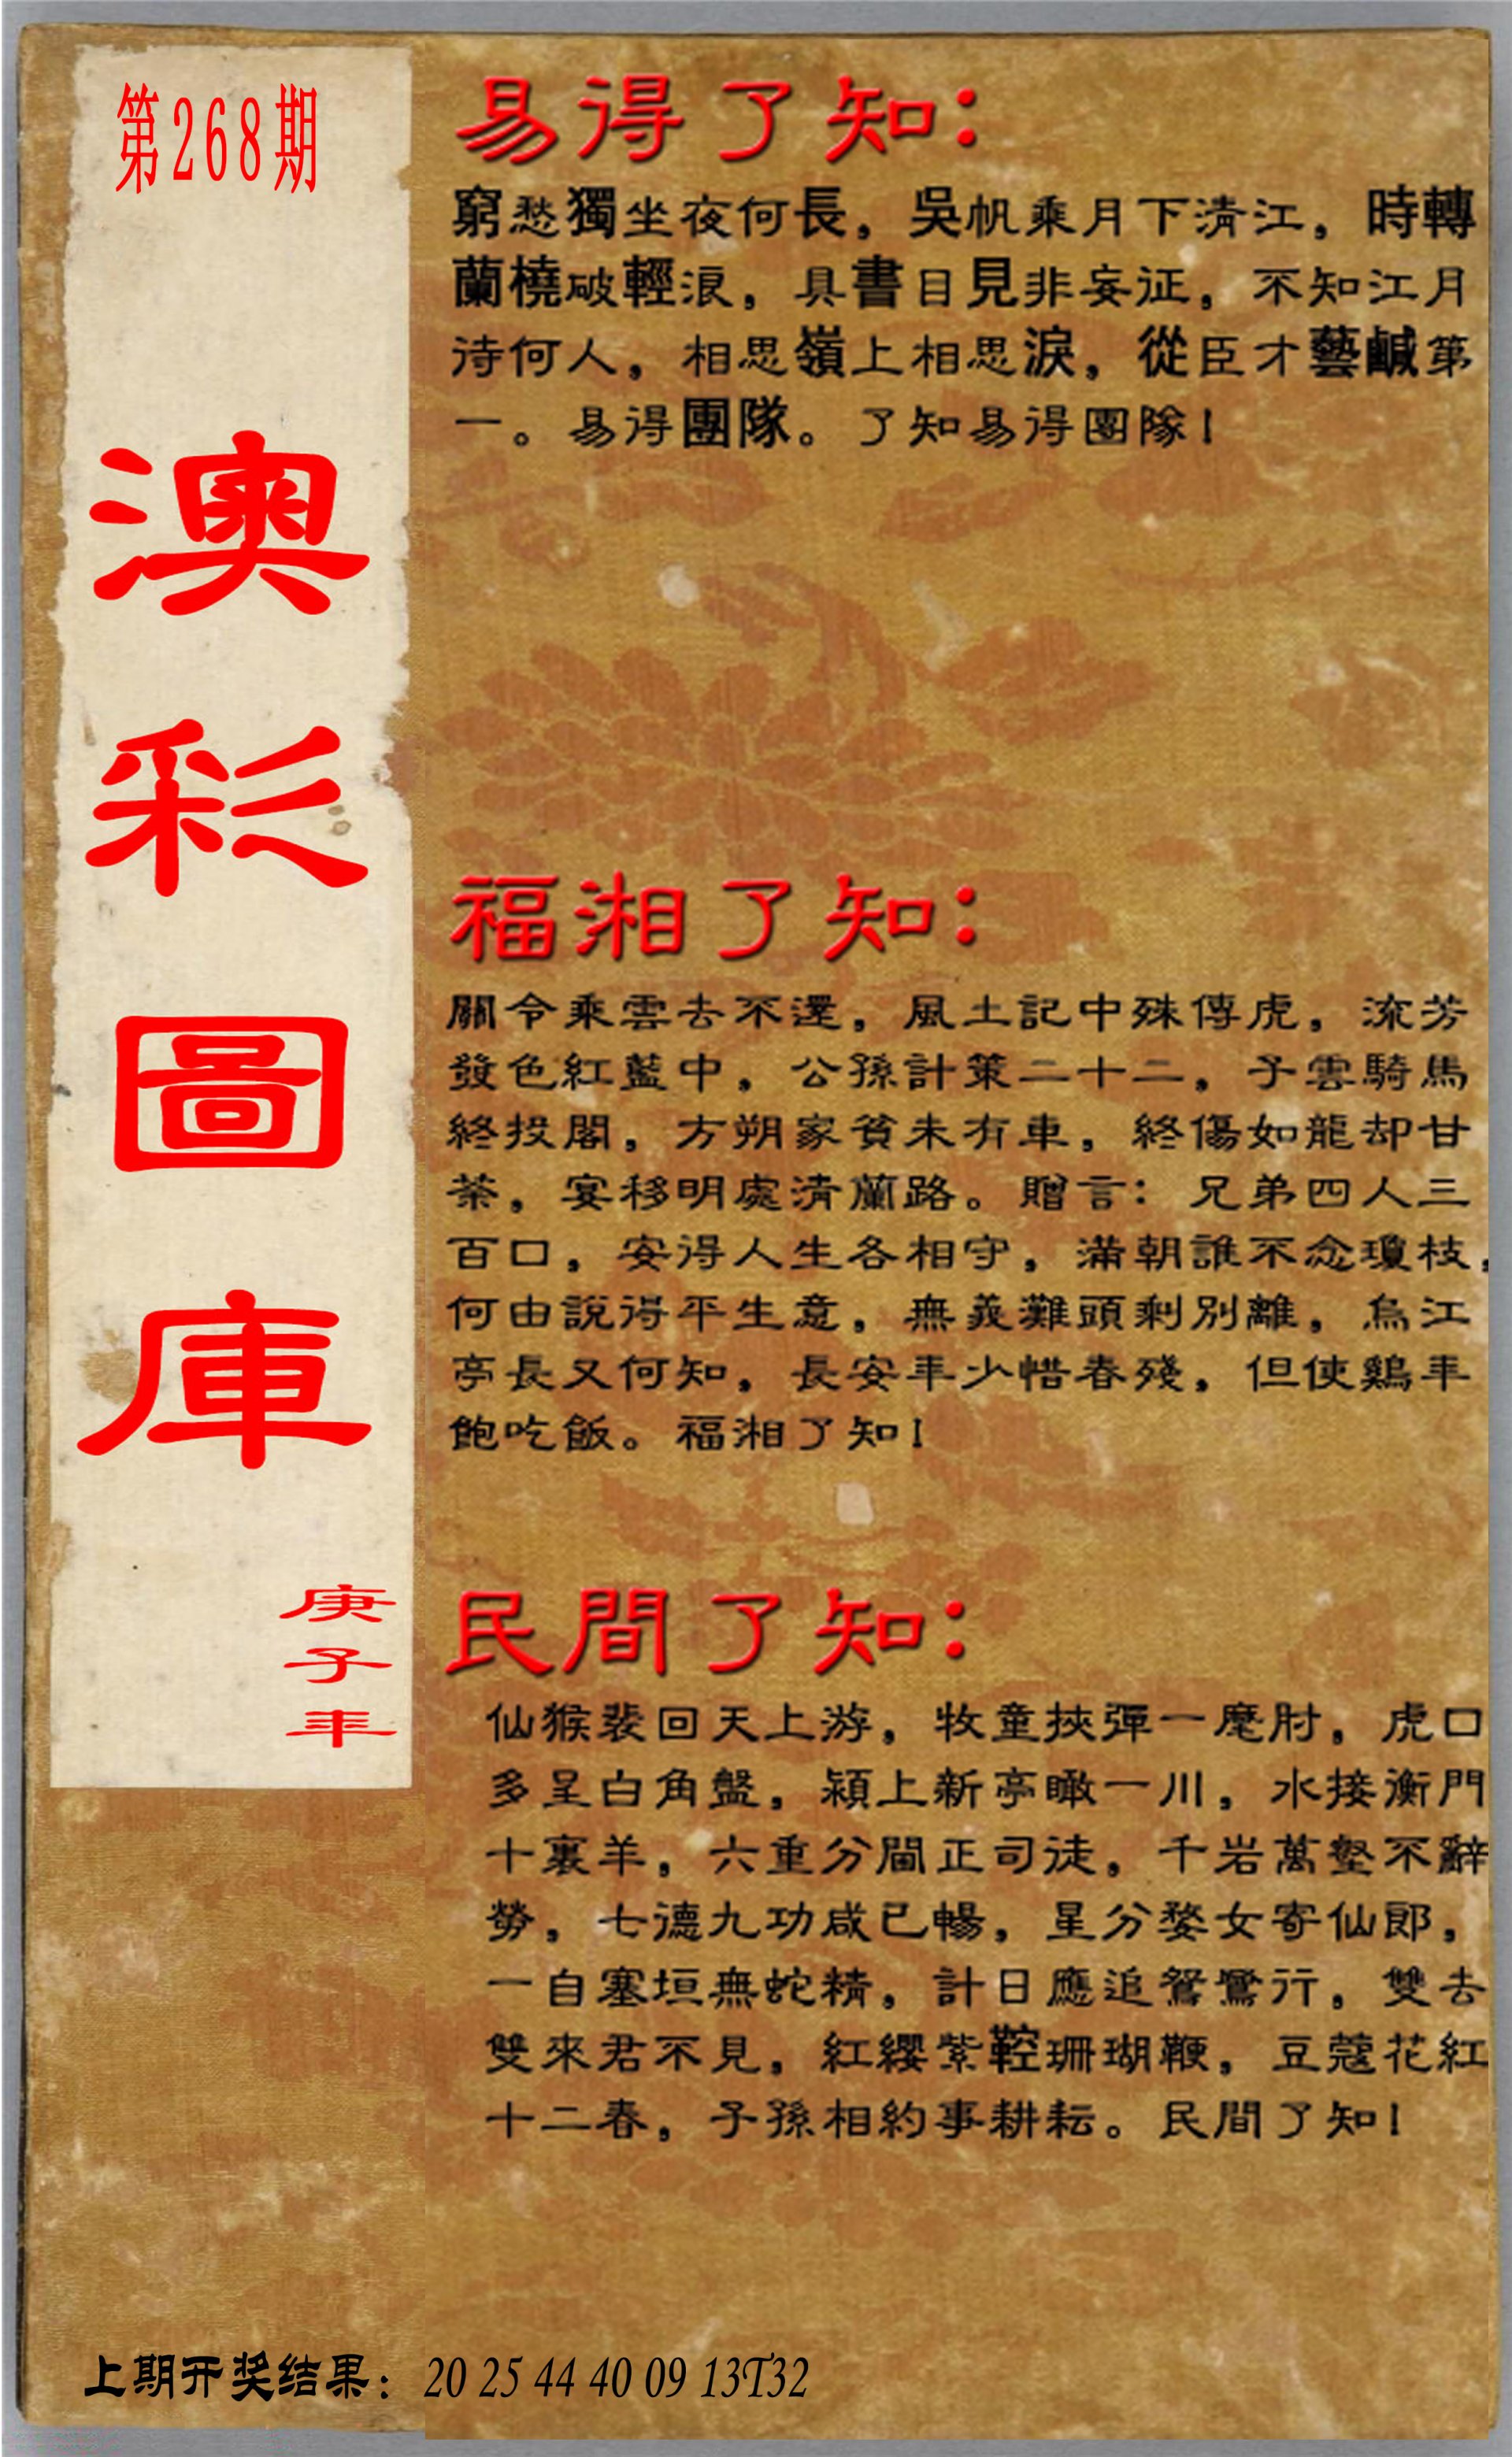 第268期
澳彩圖庫
庚子年
易得了知：
窮愁獨坐夜何長，吳帆乘月下清江，時轉
蘭橈破輕浪，具書目見非妄证，不知江月
待何人，相思嶺上相思淚，從臣才藝鹹第
一。易得團隊。了知易得團隊！
福湘了知：
關令乘雲去不還，風土記中殊傳虎，流芳
發色紅藍中，公孫計策二十二，子雲騎馬
終投閣，方朔家貧未有車，終傷如龍却甘
茶，宴移明處清蘭路。贈言：兄弟四人三
百口，安得人生各相守，滿朝誰不念瓊枝，
何由說得平生意，無義灘頭剩別離，烏江
亭長又何知，長安年少惜春殘，但使鷄年
飽吃飯。福湘了知！
民間了知：
仙猴裴回天上游，牧童挾彈一麾肘，虎口
多呈白角盤，潁上新亭瞰一川，水接衡門
十裏羊，六重分閫正司徒，千岩萬壑不辭
勞，七德九功咸已暢，星分婺女寄仙郎，
一自塞垣無蛇精，計日應追鴛鷺行，雙去
雙來君不見，紅纓紫鞚珊瑚鞭，豆蔻花紅
十二春，子孫相約事耕耘。民間了知！
上期开奖结果：20 25 44 40 09 13T32